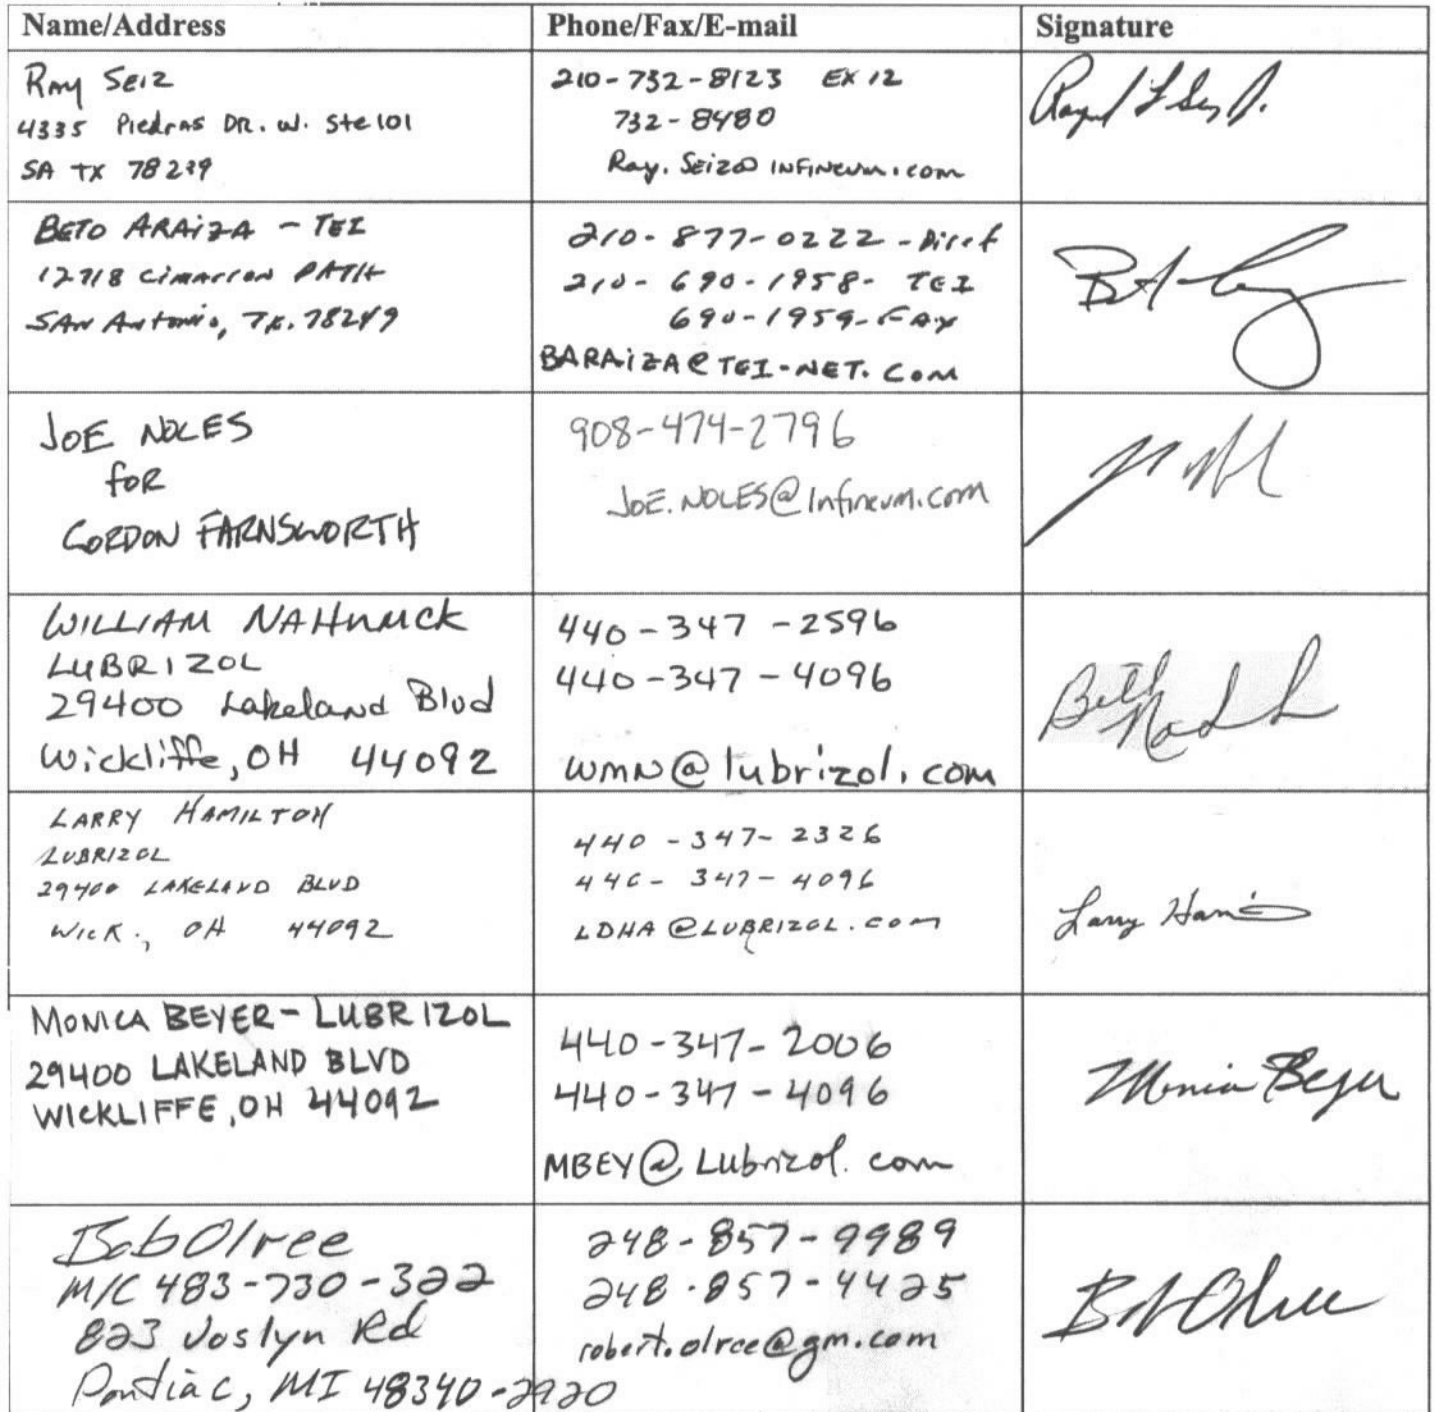 Name/Address Phone/Fax/E-mail Signature
Ray Seiz
4335 Piedras DR. W. Ste 101
SA TX 78239
210-732-8123 EX 12
732-8480
Ray.Seiz@INFINeum.com
BETO ARAiZA - TEI
12718 CimArron PATH
SAN Antonio, TX. 78249
210-877-0222-Direct
210-690-1958- TEI
690-1959-FAX
BARAiZA@TEI-NET.COM
JOE NOLES
foR
GORDON FARNSWORTH
908-474-2796
JOE.NOLES@Infineum.com
WILLIAM NAHUMCK
LUBRIZOL
29400 Lakeland Blvd
Wickliffe, OH 44092
440-347-2596
440-347-4096
wmn@lubrizol.com
Bill
LARRY HAMILTON
LUBRIZOL
29400 LAKELAND BLVD
WICK., OH 44092
440-347-2326
440-347-4096
LDHA@LUBRIZOL.COM
Larry
MONICA BEYER-LUBRIZOL
29400 LAKELAND BLVD
WICKLIFFE, OH 44092
440-347-2006
440-347-4096
MBEY@Lubrizol.com
Monica Beyer
Bob Olree
M/C 483-730-322
823 Joslyn Rd
Pontiac, MI 48340-2920
248-857-9989
248-857-4425
robert.olree@gm.com
Bob Olree